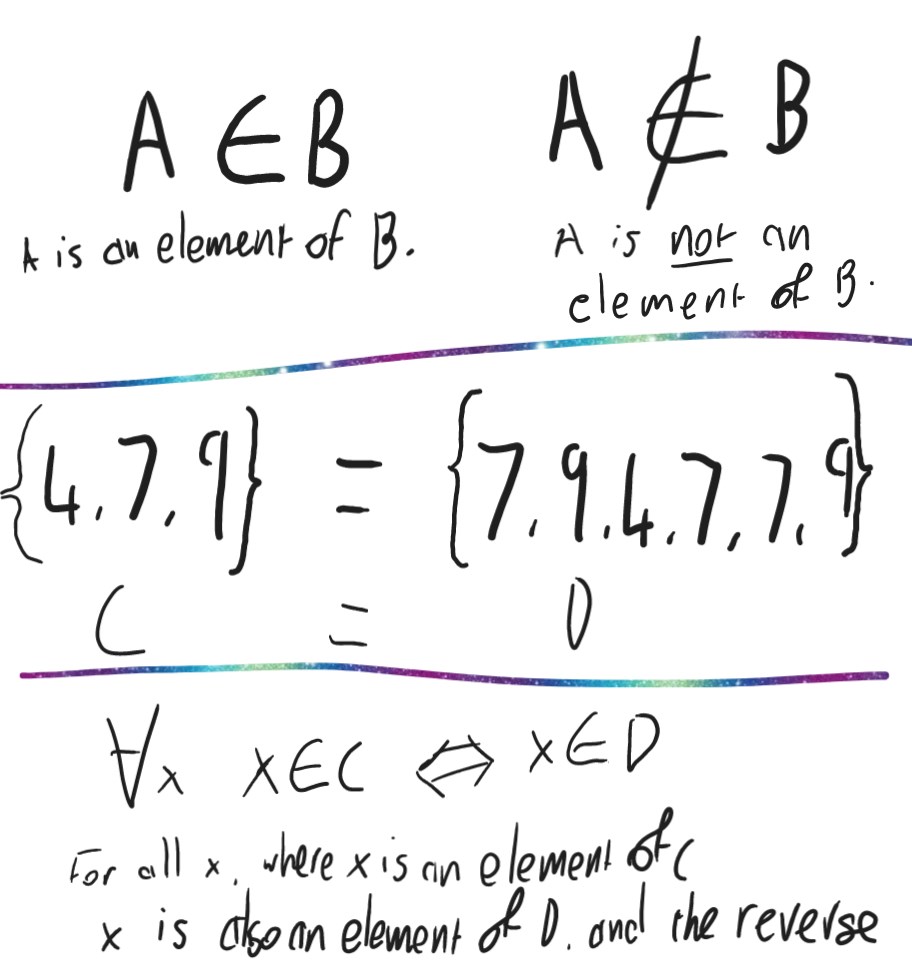 A ∈ B
A ∉ B
A is an element of B.
A is not an
element of B.
{4,7,9} = {7,9,4,7,7,9}
C = D
∀x x∈C ⇔ x∈D
For all x, where x is an element of C
x is also an element of D, and the reverse